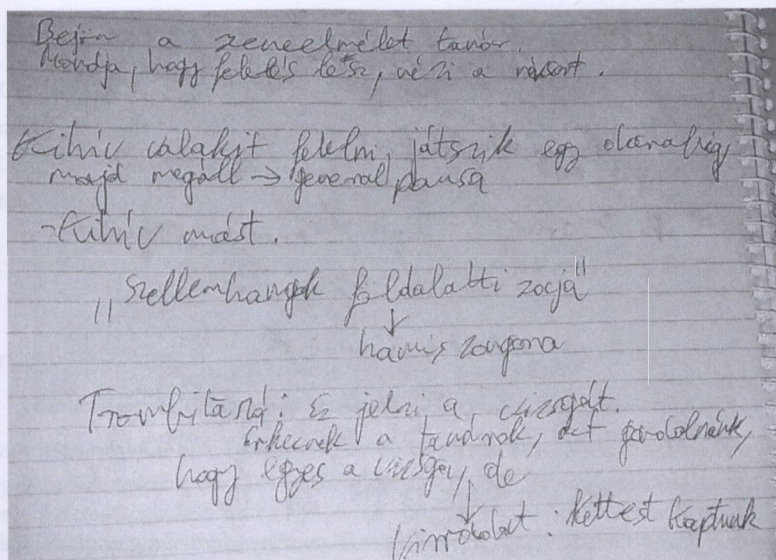 Bejön a zeneelmélet tanár.
Mondja, hogy felelés lesz, nézi a névsort.
Kihív valakit felelni, játszik egy darabig
majd megáll → general pausa
-Kihív mást.
„Szellemhangok földalatti zaja"
↓
hamis zongora
Trombitaszó: Ez jelzi a vizsgát.
Érkeznek a tanárok, azt gondolnánk,
hogy egyes a vizsga, de
↓
: kettest kaptunk